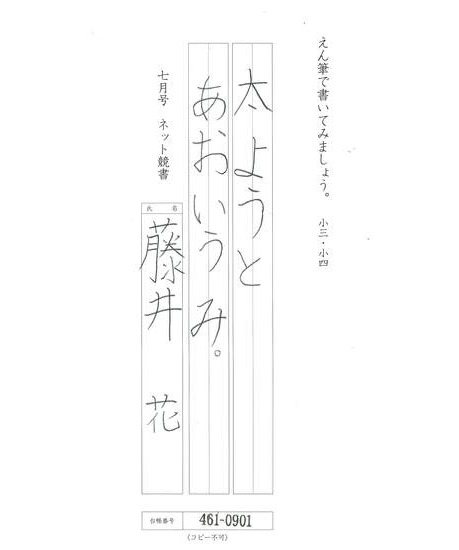 えん筆で書いてみましょう。 小三・小四
太ようと
あおいうみ。
七月号 ネット競書
氏名
藤井 花
台帳番号 461-0901
(コピー不可)